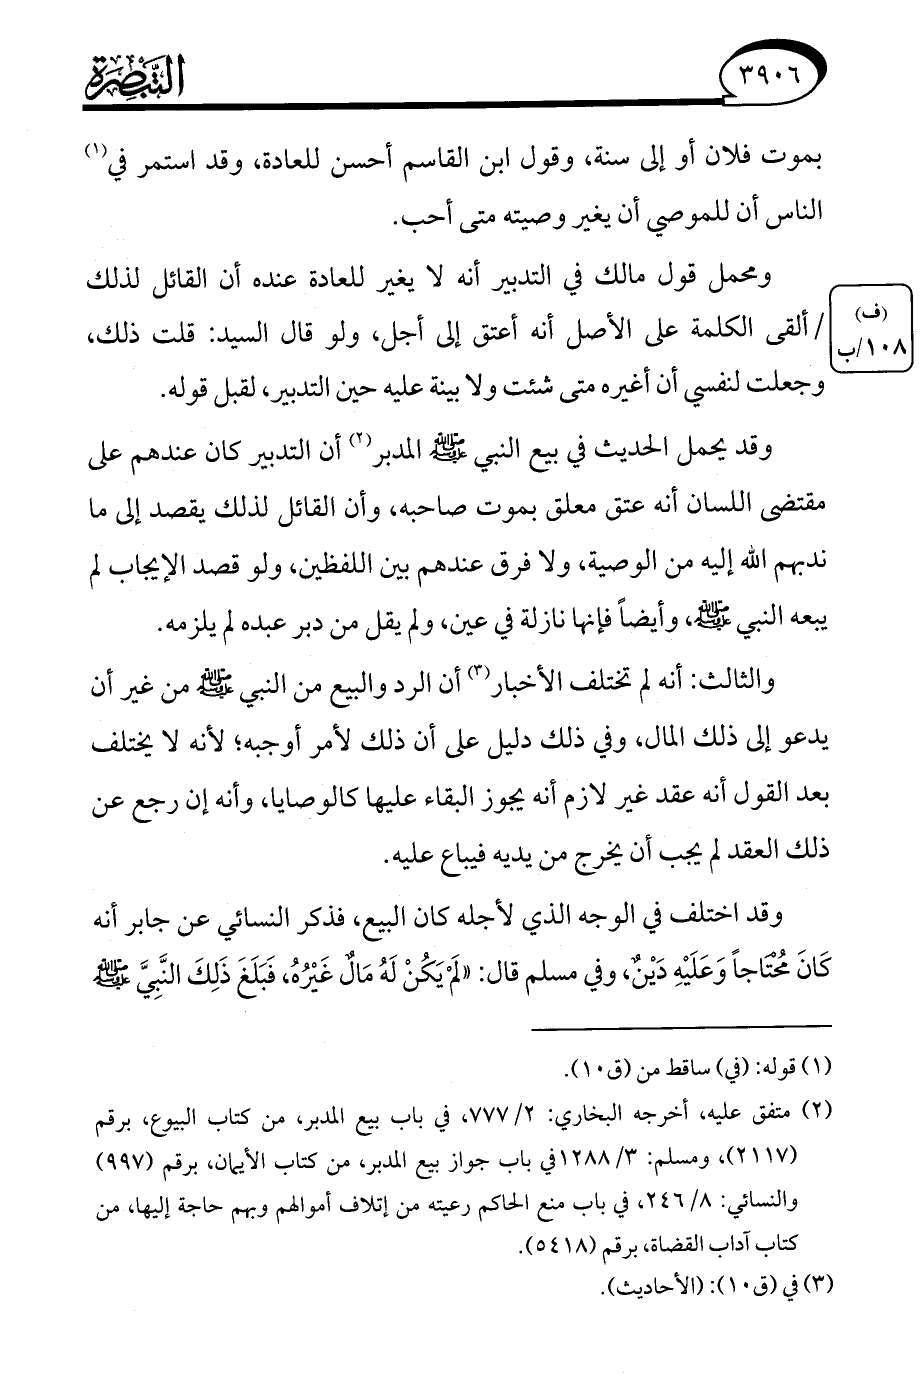 ٣٩٠٦
التبصرة
بموت فلان أو إلى سنة، وقول ابن القاسم أحسن للعادة، وقد استمر في(١)
الناس أن للموصي أن يغير وصيته متى أحب.
ومحمل قول مالك في التدبير أنه لا يغير للعادة عنده أن القائل لذلك
/ ألقى الكلمة على الأصل أنه أعتق إلى أجل، ولو قال السيد: قلت ذلك،
(ف)
١٠٨/ب
وجعلت لنفسي أن أغيره متى شئت ولا بينة عليه حين التدبير، لقبل قوله.
وقد يحمل الحديث في بيع النبي ﷺ المدبر(٢) أن التدبير كان عندهم على
مقتضى اللسان أنه عتق معلق بموت صاحبه، وأن القائل لذلك يقصد إلى ما
ندبهم الله إليه من الوصية، ولا فرق عندهم بين اللفظين، ولو قصد الإيجاب لم
يبعه النبي ﷺ، وأيضاً فإنها نازلة في عين، ولم يقل من دبر عبده لم يلزمه.
والثالث: أنه لم تختلف الأخبار(٣) أن الرد والبيع من النبي ﷺ من غير أن
يدعو إلى ذلك المال، وفي ذلك دليل على أن ذلك لأمر أوجبه؛ لأنه لا يختلف
بعد القول أنه عقد غير لازم أنه يجوز البقاء عليها كالوصايا، وأنه إن رجع عن
ذلك العقد لم يجب أن يخرج من يديه فيباع عليه.
وقد اختلف في الوجه الذي لأجله كان البيع، فذكر النسائي عن جابر أنه
كَانَ مُحْتَاجاً وَعَلَيْهِ دَيْنٌ، وفي مسلم قال: «لَمْ يَكُنْ لَهُ مَالٌ غَيْرُهُ، فَبَلَغَ ذَلِكَ النَّبِيَّ ﷺ
(١) قوله: (في) ساقط من (ق١٠).
(٢) متفق عليه، أخرجه البخاري: ٢/ ٧٧٧، في باب بيع المدبر، من كتاب البيوع، برقم
(٢١١٧)، ومسلم: ٣/ ١٢٨٨في باب جواز بيع المدبر، من كتاب الأيمان، برقم (٩٩٧)
والنسائي: ٨/ ٢٤٦، في باب منع الحاكم رعيته من إتلاف أموالهم وبهم حاجة إليها، من
كتاب آداب القضاة، برقم (٥٤١٨).
(٣) في (ق١٠): (الأحاديث).